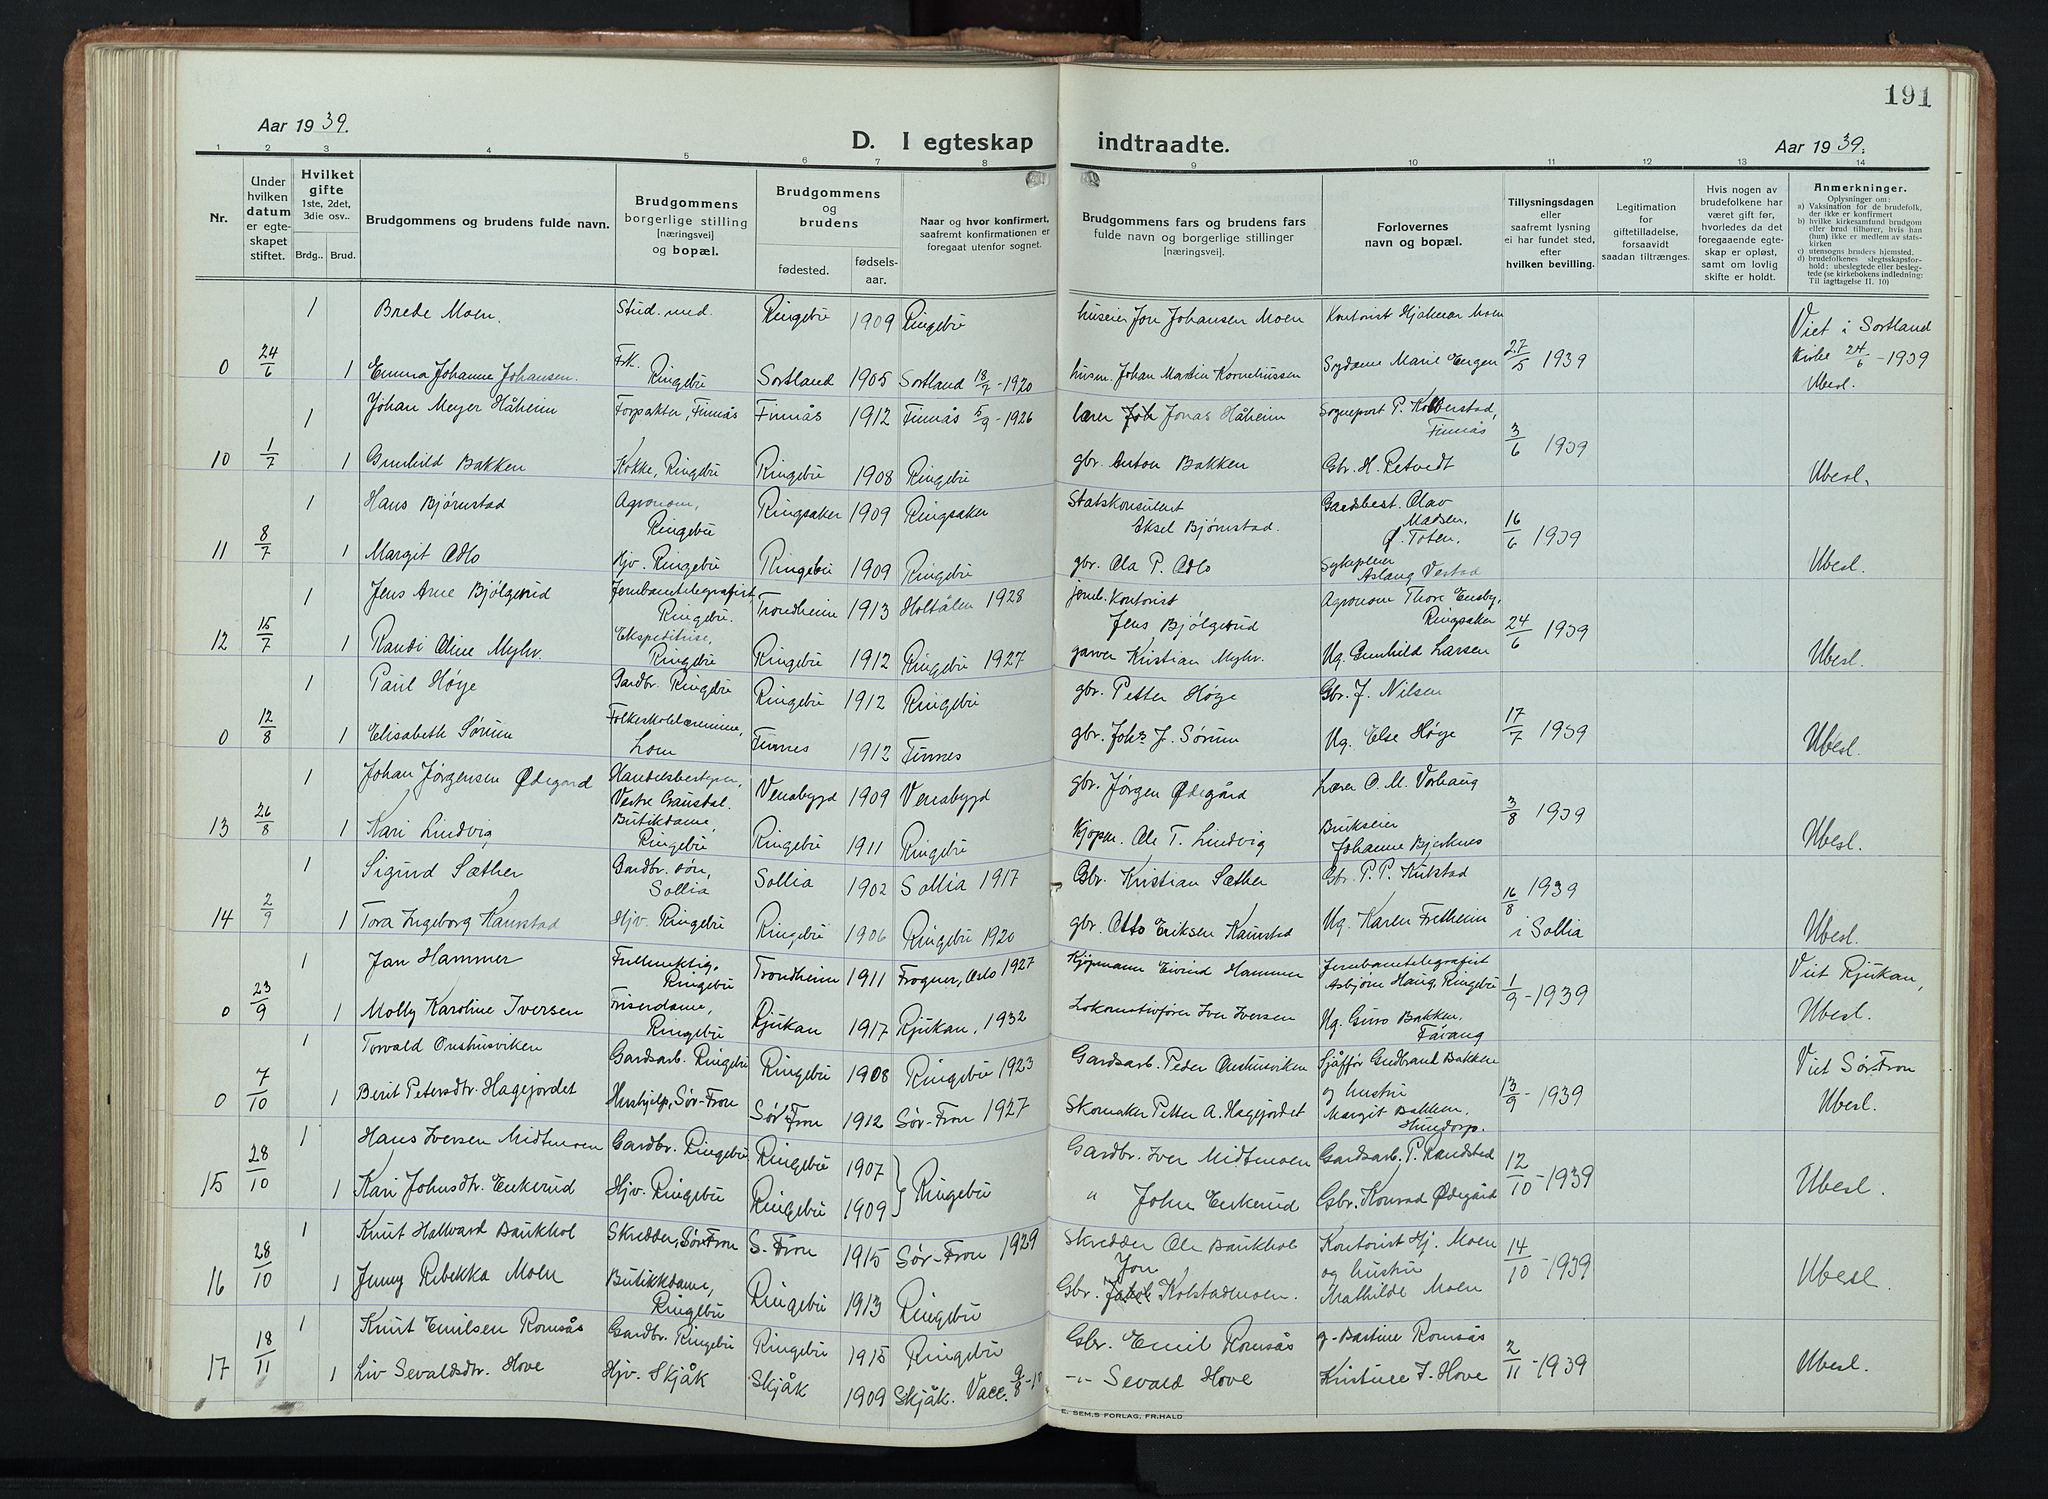 191
Aar 1939.
D. I egteskap
indtraadte.
Aar 1939.
1 2 3 4 5 6 7 8 9 10 11 12 13 14
Nr.
Under hvilken datum er egteskapet stiftet.
Hvilket gifte 1ste, 2det, 3die osv..
Brdg.. Brud.
Brudgommens og brudens fulde navn.
Brudgommens borgerlige stilling [næringsvei] og bopæl.
Brudgommens og brudens
fødested.
fødselsaar.
Naar og hvor konfirmert, saafremt konfirmationen er foregaat utenfor sognet.
Brudgommens fars og brudens fars fulde navn og borgerlige stillinger [næringsvei].
Forlovernes navn og bopæl.
Tillysningsdagen eller saafremt lysning ei har fundet sted, efter hvilken bevilling.
Legitimation for giftetilladelse, forsaavidt saadan tiltrænges.
Hvis nogen av brudefolkene har været gift før, hvorledes da det foregaaende egteskap er opløst, samt om lovlig skifte er holdt.
Anmerkninger.
Oplysninger om:
a) Vaksination for de brudefolk, der ikke er konfirmert
b) hvilke kirkesamfund brudgom eller brud tilhører, hvis han (hun) ikke er medlem av statskirken
c) utensogns bruders hjemsted.
d) brudefolkenes slegtsskapsforhold: ubeslegtede eller beslegtede (se kirkebokens indledning: Til iagttagelse II. 10)
1 Brede Moen. Stud. med. Ringebu 1909 Ringebu huseier Jon Johansen Moen Kontorist Hjalmar Moen Viet i Sortland
0 24/6 1 Emma Johanne Johansen Frk. Ringebu Sortland 1905 Sortland 18/7-1920 husm. Johan Martin Korneliussen Sydame Marie Engen 27/5 1939 Kirke 24/6-1939
Ubesl.
1 Johan Meyer Håheim Forpakter, Finnås Finnås 1912 Finnås 5/9-1926 lærer Joh Jonas Håheim Sogneprest P. Kolberstad, Finnås
10 1/7 1 Gunhild Bakken Kokke, Ringebu Ringebu 1908 Ringebu gbr. Anton Bakken Gbr. H. Retvedt 3/6 1939 Ubesl.
1 Hans Bjørnstad Agronom, Ringebu Ringsaker 1909 Ringsaker Statskonsulent Aksel Bjørnstad. Gardsbest. Olav Madsen, Ø. Toten.
11 8/7 1 Margit Odlo Hjv. Ringebu Ringebu 1909 Ringebu gbr. Ola P. Odlo Sykepleier Aslaug Vestad 16/6 1939 Ubesl.
1 Jens Arne Bjølgerud Jernbanetelegrafist, Ringebu. Trondheim 1913 Holtålen 1928 jernb. Kontorist Jens Bjølgerud Agronom Thore Ensby, Ringsaker
12 15/7 1 Randi Oline Myhr. Ekspeditrise, Ringebu Ringebu 1912 Ringebu 1927 garver Kristian Myhr. Ug. Gunhild Larsen 24/6 1939 Ubesl.
1 Paul Høye Gardbr. Ringebu Ringebu 1912 Ringebu gbr. Petter Høye Gbr. J. Nilsen
0 12/8 1 Elisabeth Sørum Folkeskolelærerinne, Lom Finnes 1912 Finnes gbr. Johs J. Sørum Ug. Else Høye 17/7 1939 Ubesl.
1 Johan Jørgensen Ødegård Handelsbestyrer, Vestre Gausdal. Venabygd 1909 Venabygd gbr. Jørgen Ødegård Lærer O. M. Vorhaug
13 26/8 1 Kari Lindvig Butikdame, Ringebu Ringebu 1911 Ringebu Kjøpm. Ole T. Lindvig Brukseier Johanne Bjerknes 3/8 1939 Ubesl.
1 Sigurd Sæther Gardbr. søn, Sollia Sollia 1902 Sollia 1917 Gbr. Kristian Sæther Gbr. P. P. Kulstad
14 2/9 1 Tora Ingeborg Kaurstad Hjv. Ringebu Ringebu 1906 Ringebu 1920 gbr. Otto Eriksen Kaurstad Ug. Karen Fretheim 16/8 1939 i Sollia Ubesl.
1 Jan Hammer Fullmektig, Ringebu Trondheim 1911 Frogner, Oslo 1927 Kjøpmann Eivind Hammer Jernbanetelegrafist Asbjørn Haug, Ringebu Viet Rjukan,
0 23/9 1 Molly Karoline Iversen Friserdame, Ringebu Rjukan 1917 Rjukan, 1932 Lokomotivfører Iver Iversen Ug. Guro Bakken, Fåvang 1/9-1939 Ubesl.
1 Torvald Onshusviken Gardsarb. Ringebu Ringebu 1908 Ringebu 1923 Gardsarb. Peder Onshusviken Sjåffør Gudbrand Bakken og hustru Viet Sør-Fron
0 7/10 1 Berit Petersdtr. Hagejordet Hushjelp, Sør-Fron Sør-Fron 1912 Sør-Fron 1927 Skomaker Petter A. Hagejordet Margit Bakken, Hundorp. 13/9-1939 Ubesl.
1 Hans Iversen Midtmoen Gardbr. Ringebu Ringebu 1907 Gardbr. Iver Midtmoen Gardsarb. P. Randstad
15 28/10 1 Kari Johnsdtr. Enkerud Hjv. Ringebu Ringebu 1909 } Ringebu " John Enkerud Gbr. Konrad Ødegård 12/10-1939 Ubesl.
1 Knut Hallvard Baukhol Skredder, Sør-Fron S. Fron 1915 Sør-Fron 1929 Skredder Ole Baukhol Kontorist Hj. Moen og hustru
16 28/10 1 Jenny Rebekka Moen Butikkdame, Ringebu Ringebu 1913 Ringebu Gbr. Jon Kolstadmoen. Mathilde Moen 14/10-1939 Ubesl.
1 Knut Emilsen Romsås Gardbr. Ringebu Ringebu 1915 Ringebu Gbr. Emil Romsås g. Bastine Romsås
17 18/11 1 Liv Sevaldsdtr. Hove Hjv. Skjåk Skjåk 1909 Skjåk. Vacc. 9/8-1 -"- Sevald Hove Kristine J. Hove 2/11-1939 Ubesl.
E. SEM.S FORLAG, FR.HALD